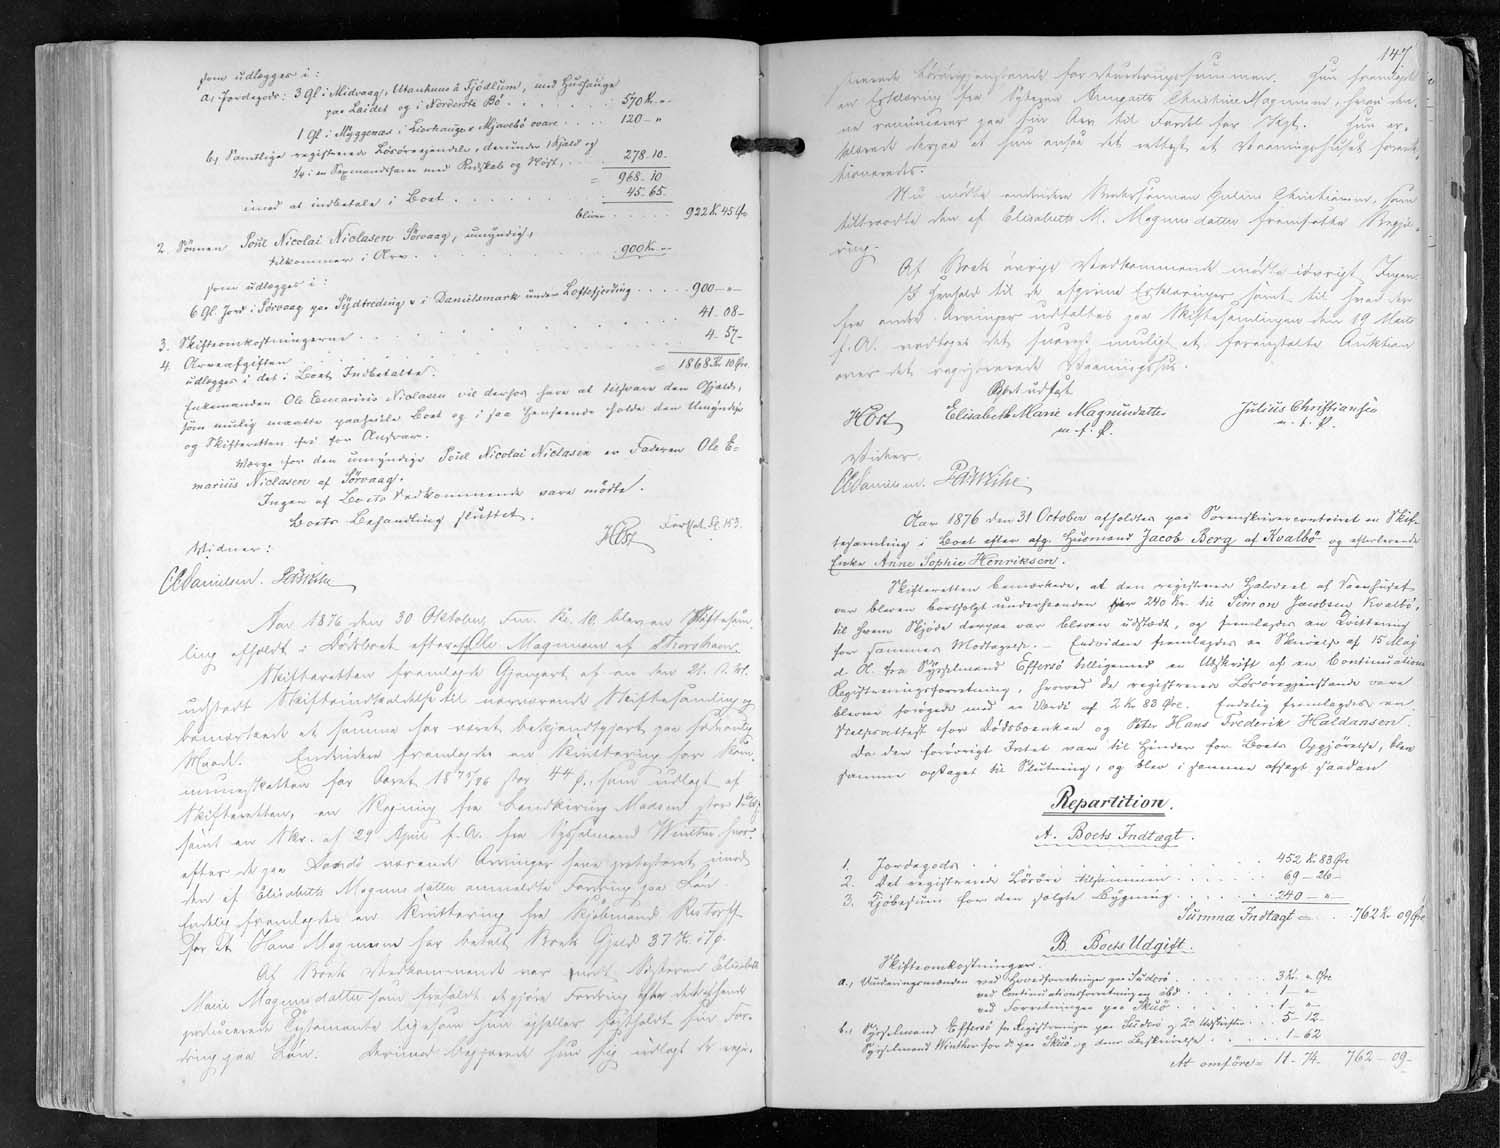 som udlægges i:
a, Jordegods: 3 Gl i Midvaag, Utanhuus á Fjödlum, med Huushauge
paa Laidet og i Norderste Bö . . . . . . 570 Kr. "
1 Gl. i Myggenæs i Liorhauge & Mjavebö ovare . . . . 120 - "
b, Samtlige registrerede Lösöreeiendele, derunder 1 Hjald og
1/4 i en Sexmandsfarer med Redskab og Nöst, . . . 278-10.
= 968-10
imod at indbetale i Boet . . . . . . . 45-65.
bliver . . . . . 922 K. 45 Öre
2. Sönnen Poul Nicolai Niclasen Sörvaag, umyndig,
tilkommer i Arv . . . . . . . 900 Kr. "
som udlægges i:
6 Gl. Jord i Sörvaag paa Sydtreding & i Danielsmark under Loftsfjerding . . . . 900 - "
3. Skifteomkostningerne . . . . . . . 41-08-
4. Arveafgiften . . . . . . . 4-57-
udlægges i det i Boet Indbetalte. = 1868 Kr 10 Öre.
Enkemanden Ole Emarius Niclasen vil derhos have at tilsvare den Gjæld,
som mulig maatte paahvile Boet og i saa Henseende holde den Umyndige
og Skifteretten fri for Ansvar.
Værge for den umyndige Poul Nicolai Niclasen er Faderen Ole E-
marius Niclasen af Sörvaag.
Ingen af Boets Vedkommende vare mödte.
Boets Behandling sluttet.
HCöst Fortsat. Pg. 153.
Vidner:
CDanielsen.
Aar 1876 den 30 Oktober, Fm. Kl. 10, blev en Skiftesam-
ling afholdt i Dödsboet efter afg. Ole Magnussen af Thorshavn.
Skifteretten fremlagde Gjenpart af en den 21. d. M.
udstedt Skifteindkaldelse til nærværende Skiftesamling og
bemærkede at samme har været bekjendtgjort paa sædvanlig
Maade. Endvidere fremlagdes en Kvittering for Kom-
muneskatten for Aaret 1875/76 stor 44 ö., som udlagt af
Skifteretten, en Regning fra Landkirurg Madsen stor
samt en Skr. af 29 April f. A. fra Sysselmand Winther, hvor-
efter de paa Sandö værende Arvinger have protesteret imod
den af Elisabeth Magnusdatter anmeldte Fordring paa Lön.
Endelig fremlagdes en Kvittering fra Kjöbmand Restorff
for at Hans Magnussen har betalt Boets Gjæld 37 Kr.
Af Boets Vedkommende var mödt Sösteren Elisabeth
Marie Magnusdatter som frafaldt at gjöre Fordring efter det
producerede Testamente ligesom hun heller fastholdt sin For-
dring paa Lön. Derimod begjærede hun sig udlagt de regi-
147
strerede Lösöregjenstande for Vurderingssummen. Hun fremlagde
en Erklæring fra Christine Magnussen, hvori den-
ne renuncierer paa sin Arv til Fordel for Hans. Hun er-
klærede derpaa at hun ansaae det rettest at Vaaningshuset forauk-
tioneredes.
Nu mödte endvidere Svigersönnen Julius Christiansen, som
tiltraadte den af Elisabeth M. Magnusdatter fremsatte Begjæ-
ring.
Af Boets övrige Vedkommende mödte iövrigt Ingen.
I Henhold til de afgivne Erklæringer samt til hvad der
fra andre Arvinger udtaltes paa Skiftesamlingen den 19 Marts
f. A. vedtoges det snarest muligt at foranstalte Auktion
over det registrerede Vaaningshus.
Boet udsat
HCöst Elisabeth Marie Magnusdatter Julius Christiansen
m. f. P. m. f. P.
Vidner.
CDanielsen.
Aar 1876 den 31 October afholdtes paa Sorenskrivercontoiret en Skif-
tesamling i Boet efter afg. Huusmand Jacob Berg af Kvalbö og efterlevende
Enke Anne Sophie Henriksen.
Skifteretten bemærkede, at den registrerede Halvdeel af Vaanhuset
var bleven bortsolgt underhaanden for 240 Kr. til Simon Jacobsen Kvalbö,
til hvem Skjöde derpaa var bleven udstedt, og fremlagdes en Qvittering
for sammes Modtagelse. - Endvidere fremlagdes en Skrivelse af 15 Maj
d. A. fra Sysselmand Effersö tilligemed en Udskrift af en Continuations
Registreringsforretning, hvorved de registrerede Lösöregjenstande vare
blevne forögede med en Værdi af 2 Kr. 83 Öre. Endelig fremlagdes en
Skifteattest for Dödsboenken og Peter Hans Frederik Haldansen.
Da der forövrigt Intet var til Hinder for Boets Opgjörelse, blev
samme optaget til Slutning, og blev i samme afsagt saadan
Repartition.
A. Boets Indtægt.
1. Jordegods . . . . . . . 452 K 83 Öre
2. Det registrerede Lösöre tilsammen . . . . . . 69-26-
3. Kjöbesum for den solgte Bygning . . . . . 240 - "
Summa Indtægt = . . 762 K. 09 Öre
B. Boets Udgift.
Skifteomkostninger.
a., Vurderingsmænden ved Hovedforretningen paa Suderö . . . . . 3 K. " Öre
ved Continuationsforretningen ibd . . . . . 1 - "
ved Forretningen paa Skuö . . . . . 1 - "
b., Sysselmand Effersö for Registreringen paa Suderö og 2de Udskrifter . . . 5-12-
Sysselmand Winther for do paa Skuö og dens Beskrivelse . . . . . 1-62
At omföre = 11-74. 762-09-